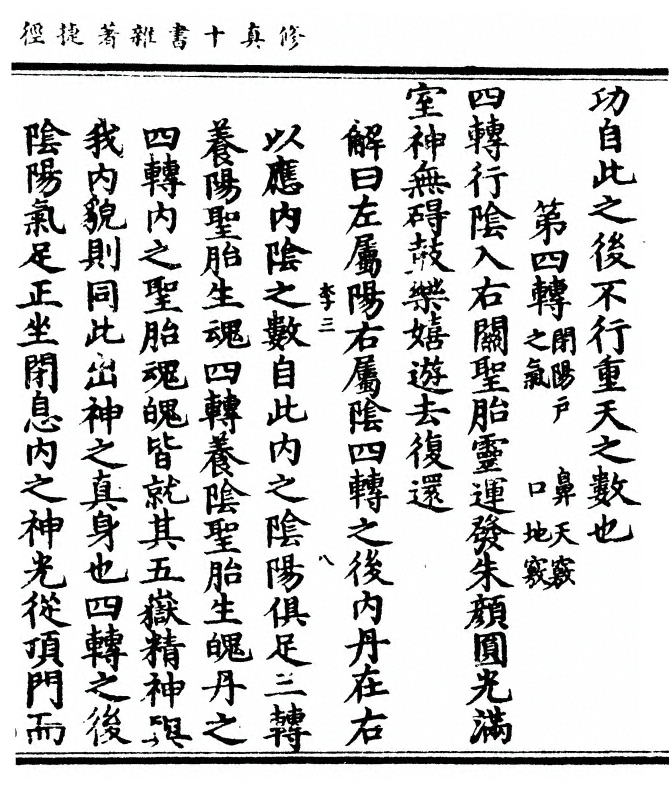 修真十書雜著捷徑
功自此之後不行重天之數也
第四轉閉陽户之氣 鼻天竅口地竅
四轉行陰入右關聖胎靈運發朱顏圓光滿
室神無碍鼓樂嬉遊去復還
解曰左屬陽右屬陰四轉之後內丹在右
李三 八
以應內陰之數自此內之陰陽俱足三轉
養陽聖胎生魂四轉養陰聖胎生魄丹之
四轉內之聖胎魂魄皆就其五嶽精神與
我內貌則同此出神之真身也四轉之後
陰陽氣足正坐閉息內之神光從頂門而